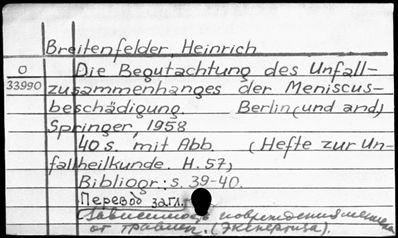 Breitenfelder, Heinrich
O Die Begutachtung des Unfall-
33990 zusammenhanges der Meniscus-
beschädigung. Berlin (und and)
Springer, 1958
40 s. mit Abb. (Hefte zur Un-
fallheilkunde. H. 57)
Bibliogr.: s. 39-40.
Перевод загл.:
Зависимость повреждения мениска
от травмы. (Экспертиза).